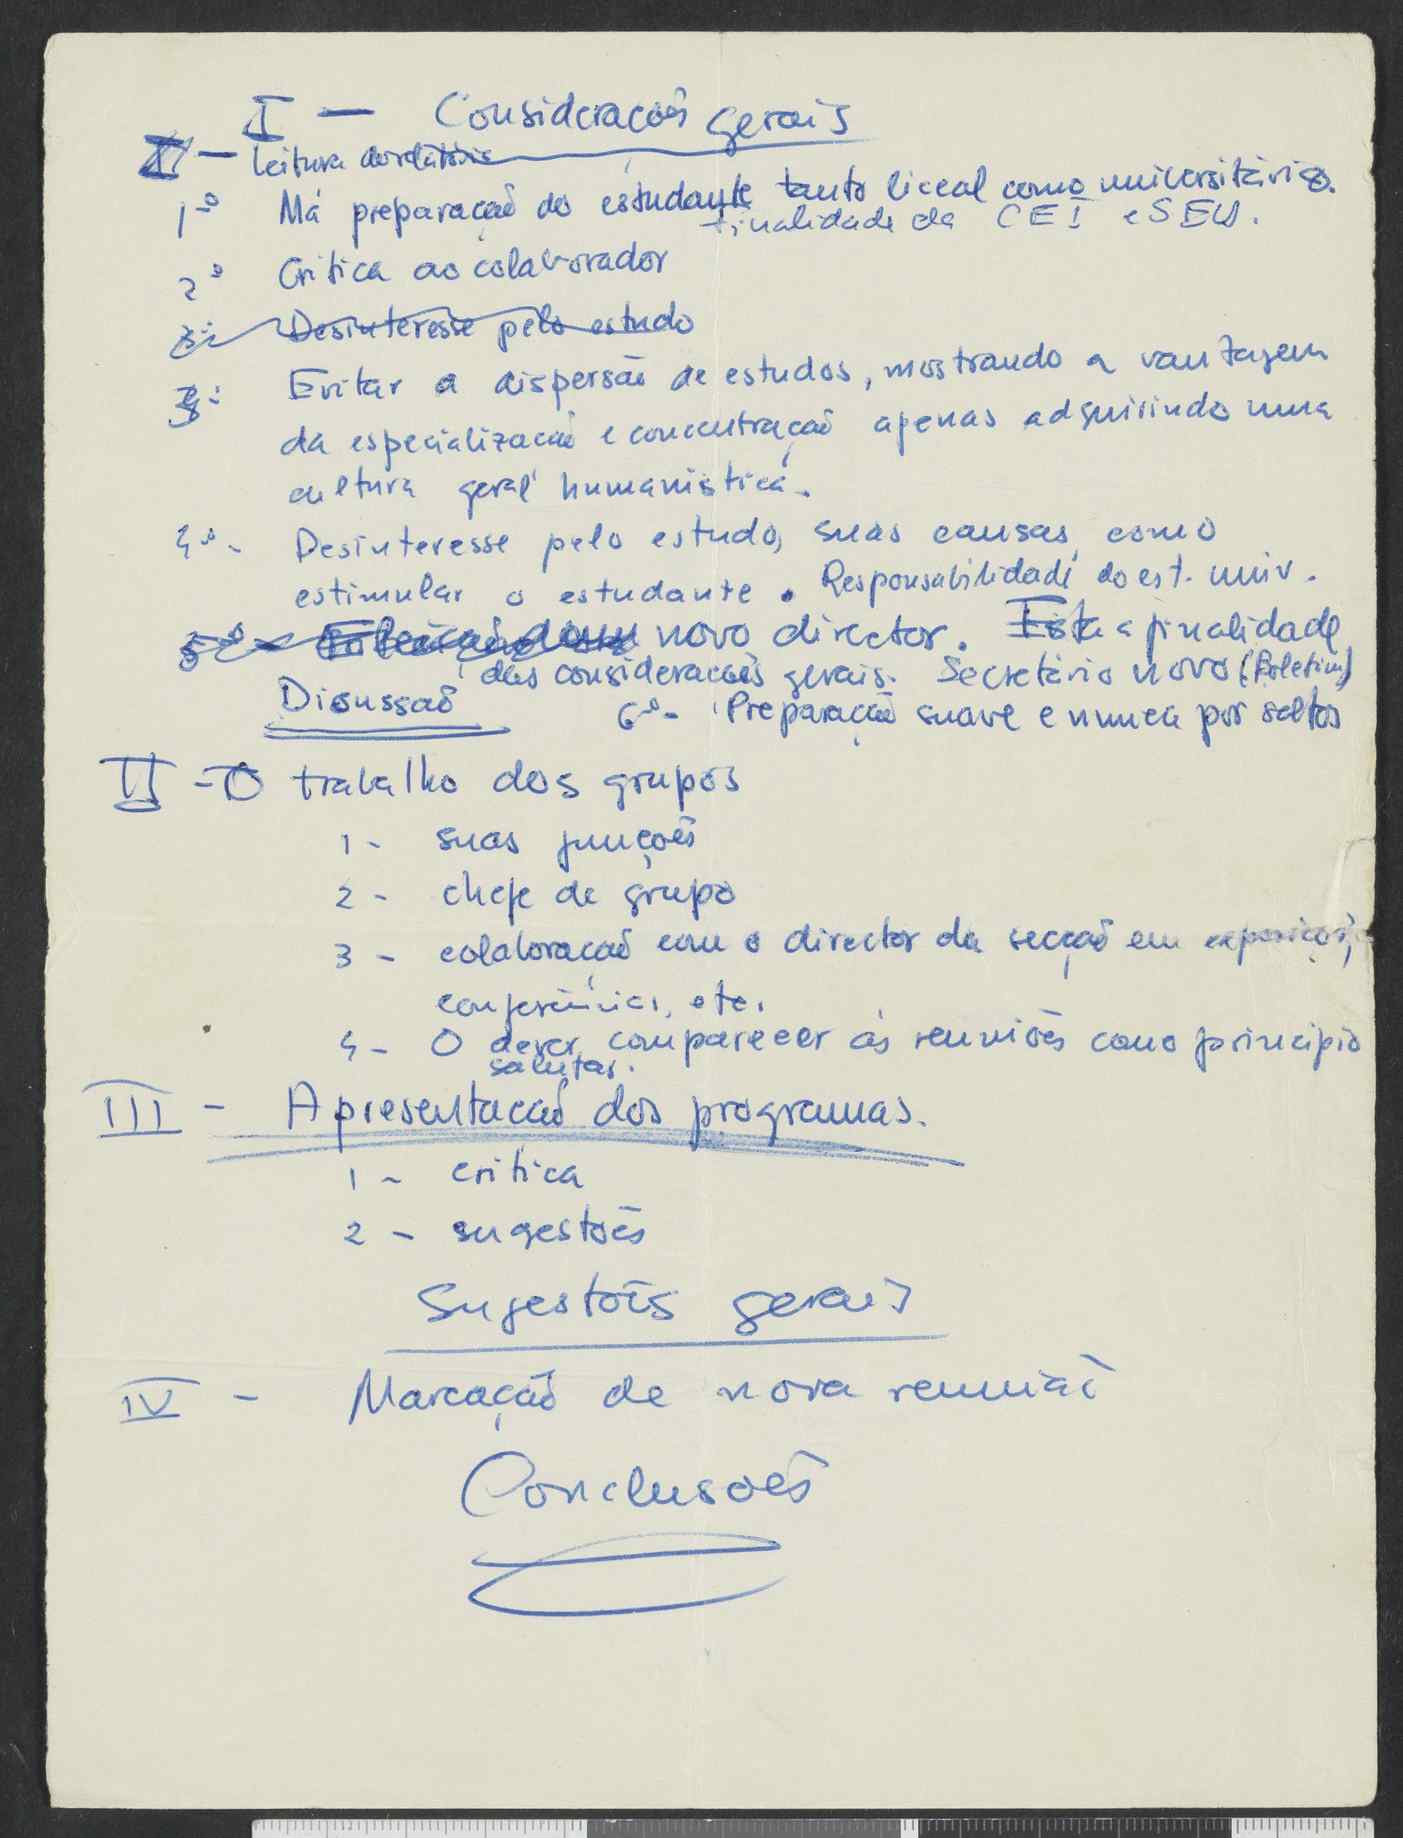 I — Considerações gerais
II — Leitura do relatório
1º Má preparação do estudante tanto liceal como universitário.
finalidade da CEI e SEU.
2º Crítica ao colaborador
3º Desinteresse pelo estudo
3º Evitar a dispersão de estudos, mostrando a vantagem
da especialização e concentração apenas adquirindo uma
cultura geral humanistica.
4º - Desinteresse pelo estudo, suas causas, como
estimular o estudante. Responsabilidade do est. univ.
5º - novo director. Esta a finalidade
das considerações gerais. Secretário novo (Boletim)
Discussão 6º - Preparação suave e nunca por saltos
II - O trabalho dos grupos
1 - suas funções
2 - chefe de grupo
3 - colaboração com o director da secção em exposições,
conferências, etc.
4 - O dever comparecer às reuniões como principio
salutar.
III - Apresentação dos programas.
1 - crítica
2 - sugestões
Sugestões gerais
IV - Marcação de nova reunião
Conclusões